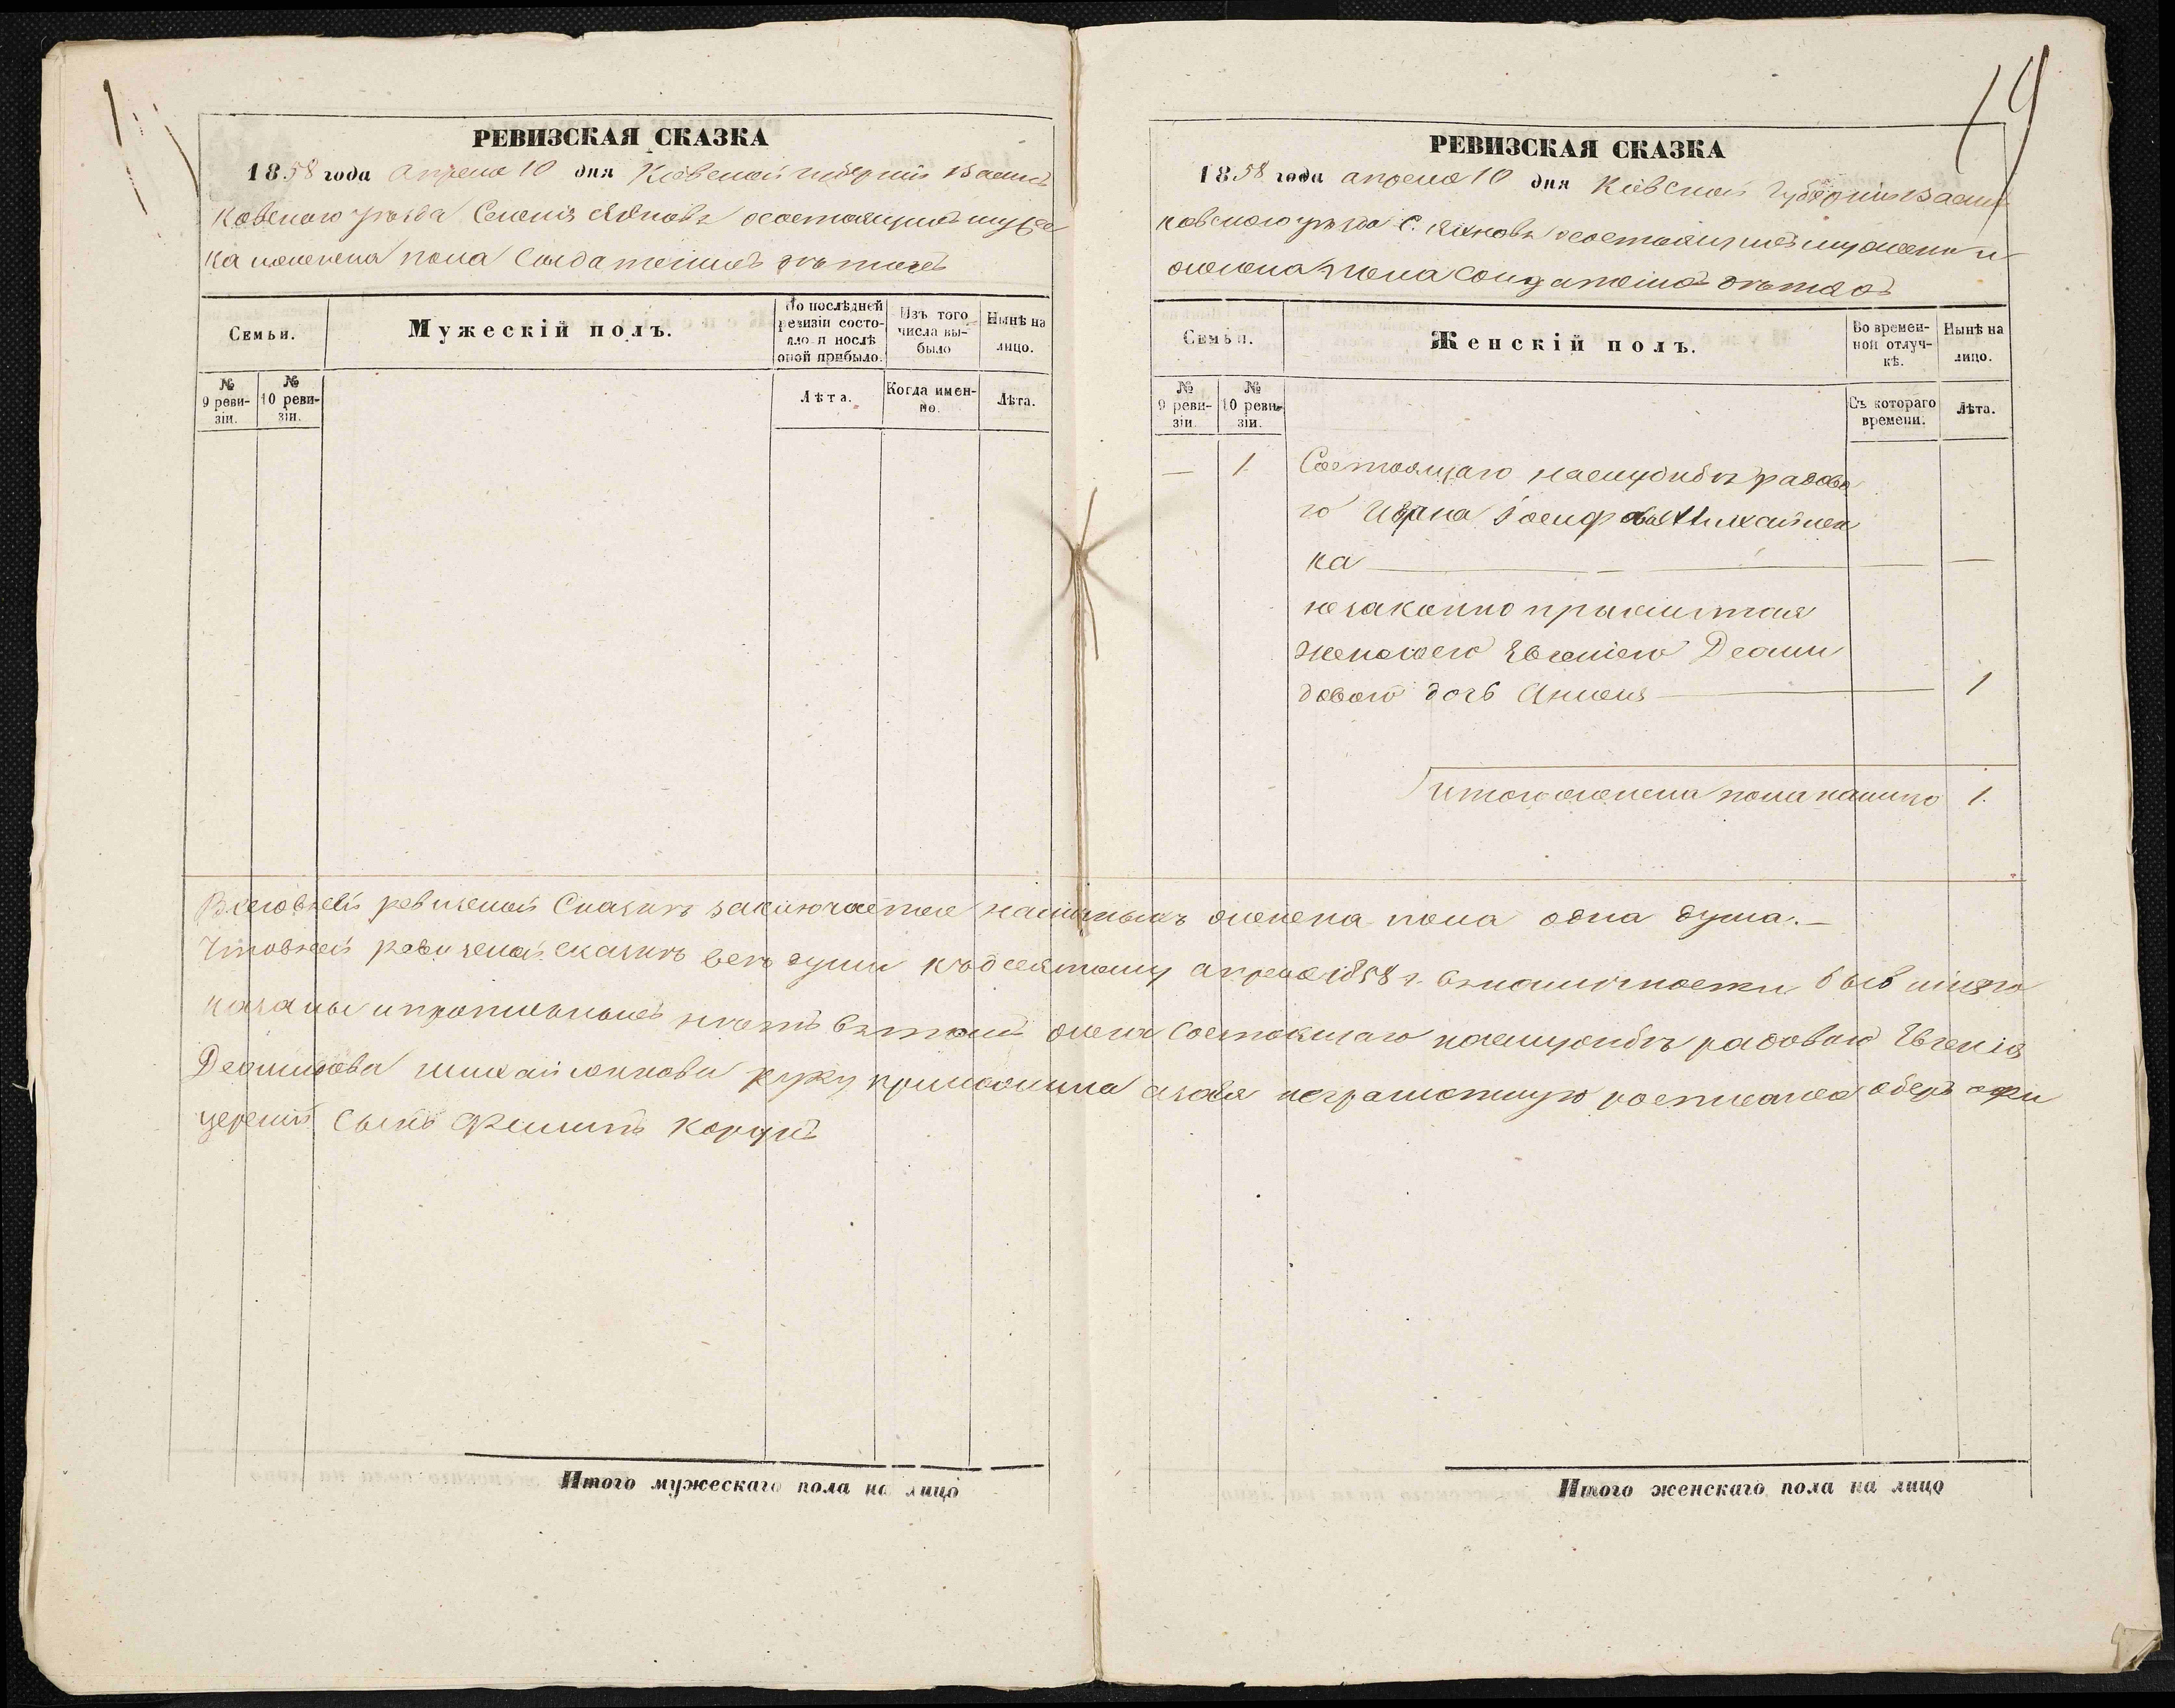 РЕВИЗСКАЯ СКАЗКА
1858 года апреля 10 дня Кіевской губерніи Василь
ковского уѣзда Селенія Яхновъ о состоящихъ мужес
ка и женска пола Солдатскихъ дѣтяхъ
Семьи.
Мужескій полъ.
По послѣдней ревизіи состо-яло и послѣ оной прибыло.
Изъ того числа вы-было
Нынѣ на лицо.
№ 9 реви-зіи.
№ 10 реви-зіи.
Лѣта.
Когда имен-но.
Лѣта.
Итого мужескаго пола на лицо
19
РЕВИЗСКАЯ СКАЗКА
1858 года апреля 10 дня Кіевской Губерніи Василь
ковского уѣзда С. Яхновъ о состоящихъ мужеска и
женска пола Солдатскихъ дѣтяхъ
Семьи.
Женскій полъ.
Во времен-ной отлуч-кѣ.
Нынѣ на лицо.
№ 9 реви-зіи.
№ 10 реви-зіи.
Съ котораго времени.
Лѣта.
— 1. Состоящаго на службѣ рядово
го Ивана Іосифова Михайлен
ка — —
незаконно прижитая
женою его Евгеніею Деоми
довою дочь Анна — 1
Итого женска пола налицо 1.
Всего въ сей ревизской Сказкѣ заключается наличныхъ женска пола одна душа.—
Что въ сей ревизской сказкѣ всѣ души къ десятому апреля 1858 г. въ наличности бывшія по
казаны и прописныхъ нѣтъ въ томъ жена состоящаго на службѣ рядоваго Евгенія
Деомидова Михайленкова руку приложила а за нея неграмотную росписался оберъ офи
церскій Сынъ Филипъ
Итого женскаго пола на лицо